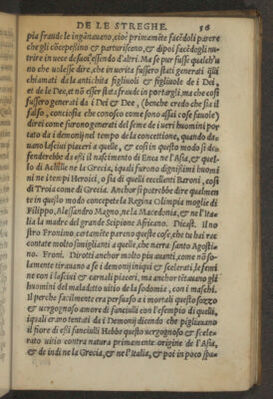 DE LE STREGHE. 56
pia fraude le ingánauano, cioè primaméte facédoli parere
che gli cócepessino & parturisceno, & dipoi facédogli nu-
trire in uece de suoi essendo d'altri. Ma se pur fusse qualch'u
no che uolesse dire, che in uerita fussero stati generati quì
chiamati da le antichita figliuoli & figliuole de i Dei,
et de le Dee, et nó esser stata fraude in portargli, ma che cosi
fussero generati da i Dei & Dee, (benche credo che sia il
falso, conciosia che conosco come sono assai cose fauole)
dirò come furono generati del seme de i ueri huomini por
tato da i demoni nel tempo de la concettione, quando da-
uano lasciui piaceri a quelle, & cosi in questo modo si de-
fenderebbe da essi il nascimento di Enea ne l'Asia, & quel-
lo di Achille ne la Grecia, i quali furono dignissimi huomi
ni ne i tempi Heroici, o sia di quelli eccellenti Baroni, cosi
di Troia come di Grecia. Anchor si potrebbe dire qualmen
te in questo modo concepete la Regina Olimpia moglie di
Filippo, Alessandro Magno, ne la Macedonia, & ne l'Ita-
lia la madre del grande Scipione Africano. Dicast. il no
stro Fronimo certaméte pareno queste cose, che tu hai rac
contate molto simiglianti a quelle, che narra santo Agosti-
no. Froni. Dirotti anchor molto piu auanti, come nó so-
lamente tirauano a se i demoni iniqui & scelerati, le femi
ne con i lasciui & carnali piaceri, ma anchor titauano gli
huomini del maladetto uitio de la sodomia, con i maschi.
Il perche facilmente era persuaso a i mortali questo sozzo
& uergognoso amore di fanciulli con l'esempio di quelli,
iquali erano tentati da i Demoni dicendo che pigliauano
il fiore di essi fanciulli Hebbe questo uergognoso & scele-
rato uitio contra natura primamente origine de l'Asia,
& de indi ne la Grecia, & ne l'Italia, & poi in poco spa-